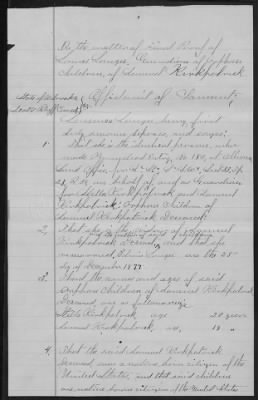 In the matter of Final Proof of
Louise Linger, Guardian of Orphan
Children, of Samuel Kirkpatrick
State of Nebraska
County ss
Affidavit of Claimant
Linger being first
duly sworn deposes, and says:
1 That she is the identical person, who
made Homestead Entry, No 180, at
Land Office, for
28, on behalf of, and as Guardian
for Stella Kirkpatrick, and Samuel
Kirkpatrick, Orphan Children of
Samuel Kirkpatrick Deceased
2, That she is the widow of Samuel
Kirkpatrick Deceased, and that she
remarried, Linger on the 25
day of December 1877
3. That the names and ages of said
Orphan Children of Samuel Kirkpatrick
Deceased, are as follows
Stella Kirkpatrick age 20 years
Samuel Kirkpatrick, as, 18 "
4, That the said Samuel Kirkpatrick
Deceased was a native born citizen of the
United States, and that said children
are native born citizens of the United States